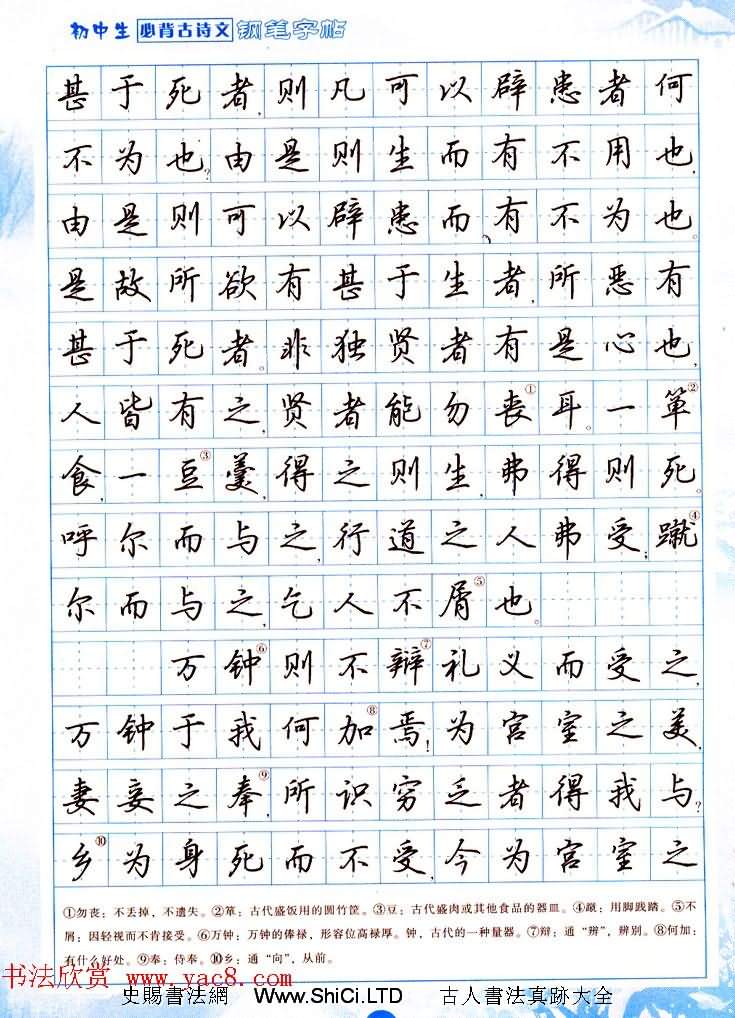 初中生 必背古诗文 钢笔字帖
甚于死者,则凡可以辟患者何
不为也?由是则生而有不用也,
由是则可以辟患而有不为也。
是故所欲有甚于生者,所恶有
甚于死者。非独贤者有是心也,
人皆有之,贤者能勿丧①耳。一箪②
食,一豆③羹,得之则生,弗得则死。
呼尔而与之,行道之人弗受;蹴④
尔而与之,乞人不屑⑤也。
万钟⑥则不辩⑦礼义而受之,
万钟于我何加⑧焉!为宫室之美,
妻妾之奉⑨,所识穷乏者得我与?
乡⑩为身死而不受,今为宫室之
①勿丧:不丢掉,不遗失。②箪:古代盛饭用的圆竹筐。③豆:古代盛肉或其他食品的器皿。④蹴:用脚践踏。⑤不
屑:因轻视而不肯接受。⑥万钟:万钟的俸禄,形容位高禄厚。钟,古代的一种量器。⑦辩:通“辨”,辨别。⑧何加:
有什么好处。⑨奉:侍奉。⑩乡:通“向”,从前。
书法欣赏 www.yac8.com
史賜書法網 Www.ShiCi.LTD 古人書法真跡大全